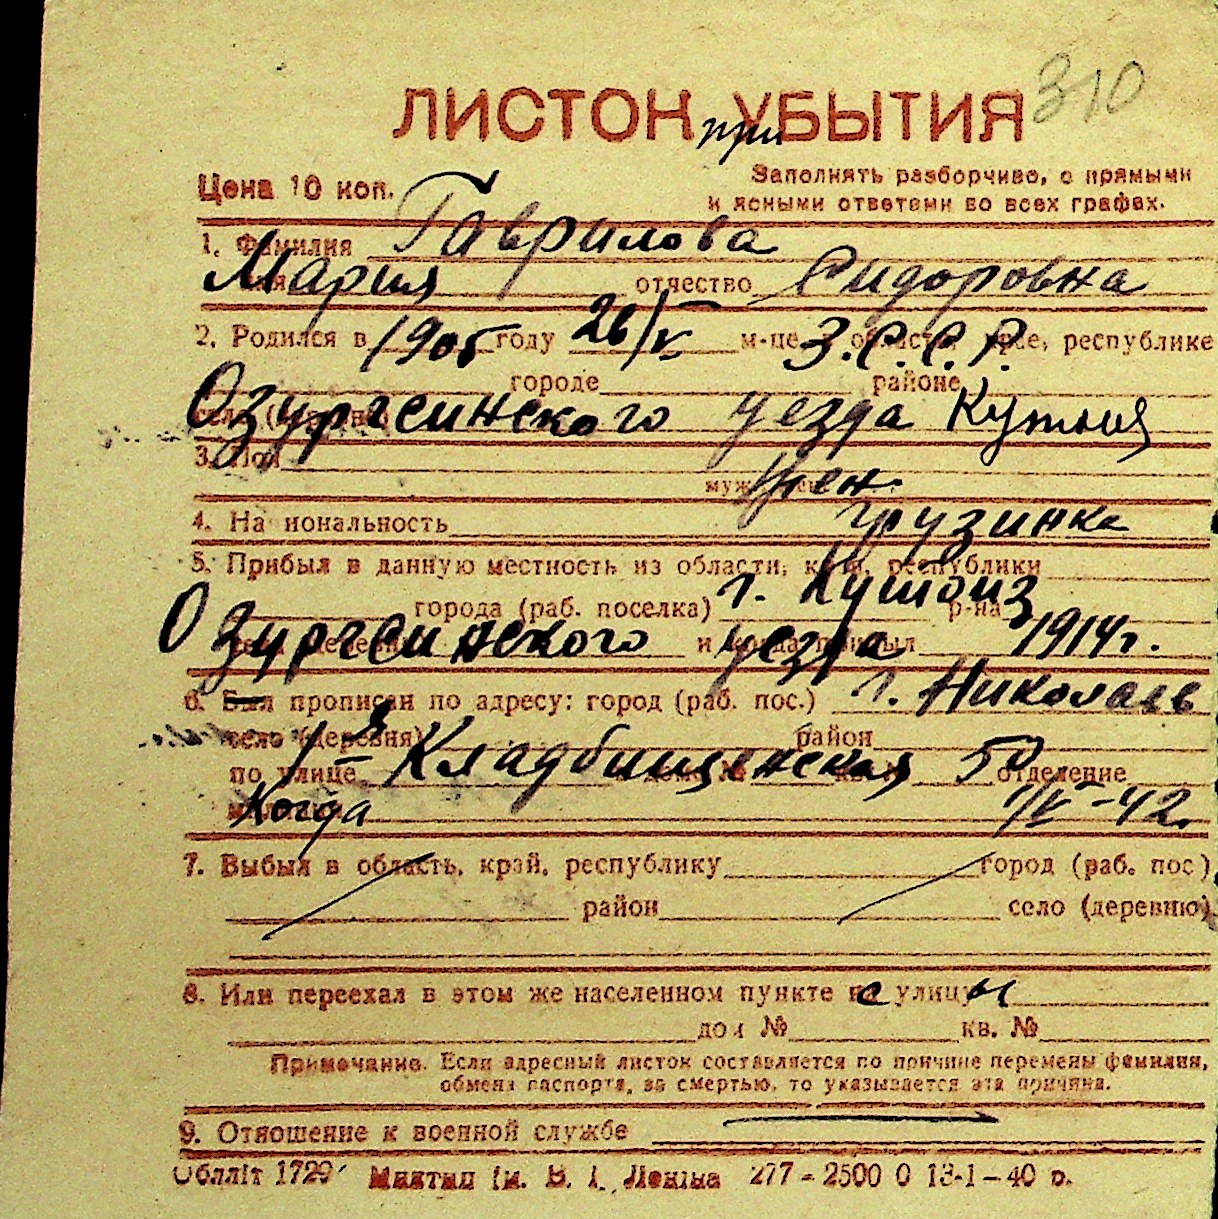 310
ЛИСТОК УБЫТИЯ
при
Цена 10 коп.
Заполнять разборчиво, с прямыми
и ясными ответами во всех графах.
1. Фамилия Гаврилова
Мария отчество Сидоровна
2. Родился в 1905 году 26/V м-це З.С.С.Р. области, крае, республике
городе районе
Озургсинского уезда
3. Пол
жен.
4. Национальность грузинка
5. Прибыл в данную местность из области, края, республики
города (раб. поселка) г. р-на
Озургсинского уезда и когда прибыл 1914 г.
6. Был прописан по адресу: город (раб. пос.) г. Николаев
село (деревня) район
по улице 1-я Кладбищенская 50 отделение
Когда 1/V-42.
7. Выбыл в область, край, республику город (раб. пос)
район село (деревню)
8. Или переехал в этом же населенном пункте с улицы
дом № кв. №
Примечание. Если адресный листок составляется по причине перемены фамилии,
обмена паспорта, за смертью, то указывается эта причина.
9. Отношение к военной службе
Облліт 1729 ім. В. І. Леніна 277 – 2500 0 13-1-40 р.